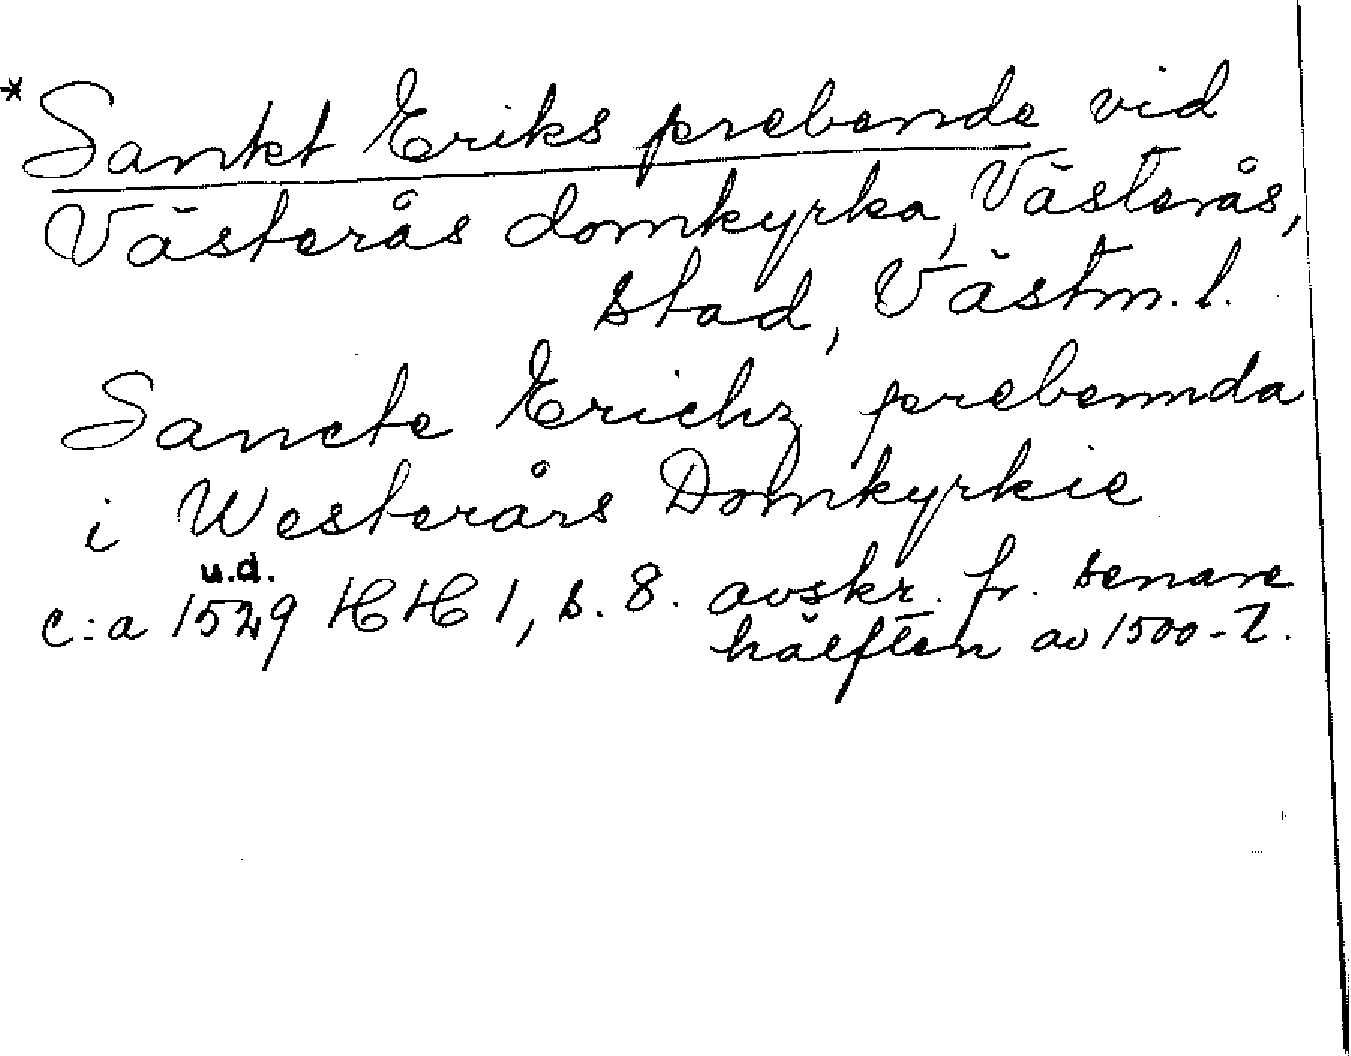 * Sankt Eriks prebende vid
Västerås domkyrka, Västerås,
stad, Västm. l.
Sancte Erichz prebennda
i Westerårs Domkyrkie
u.d.
c:a 1529 HH 1, s. 8. avskr. fr. senare
hälften av 1500-t.